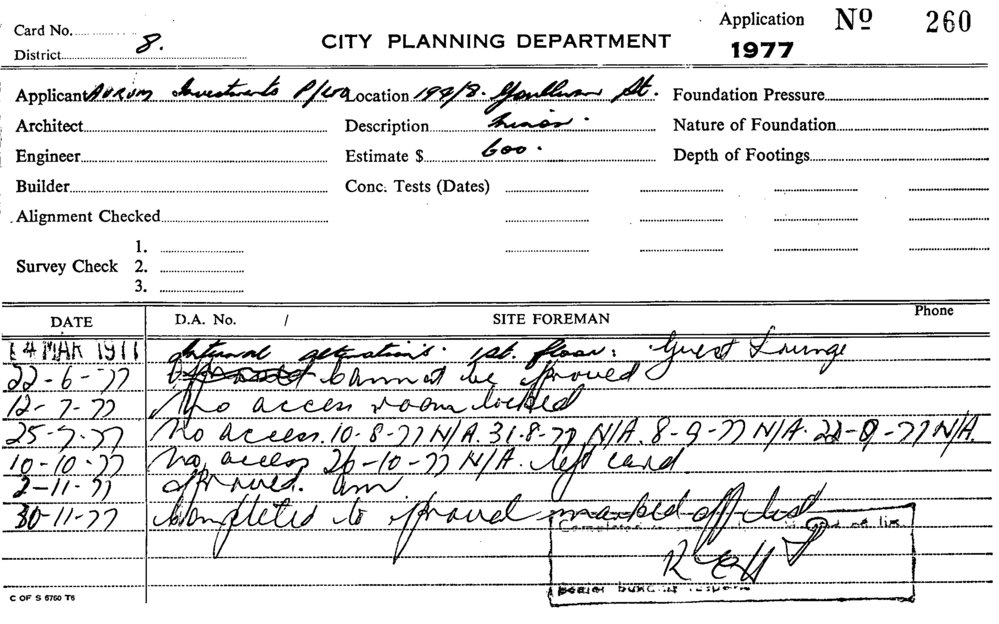 Card No. Application Nº 260
District 8. CITY PLANNING DEPARTMENT 1977
Applicant Aurum Investments P/Ltd Location 199/8. Goulburn St. Foundation Pressure
Architect Description Minor. Nature of Foundation
Engineer Estimate $ 600. Depth of Footings
Builder Conc. Tests (Dates)
Alignment Checked
1.
Survey Check 2.
3.
DATE D.A. No. / SITE FOREMAN Phone
14 MAR 1977 Internal alterations. 1st. floor: Guest Lounge
22-6-77 cannot be
12-7-77 No access room locked
25-7-77 No access. 10-8-77 N/A. 31-8-77 N/A. 8-9-77 N/A. 22-9-77 N/A.
10-10-77 No access 26-10-77 N/A. left card
2-11-77
30-11-77 Completed to marked off
Completed
C OF S 5760 T6